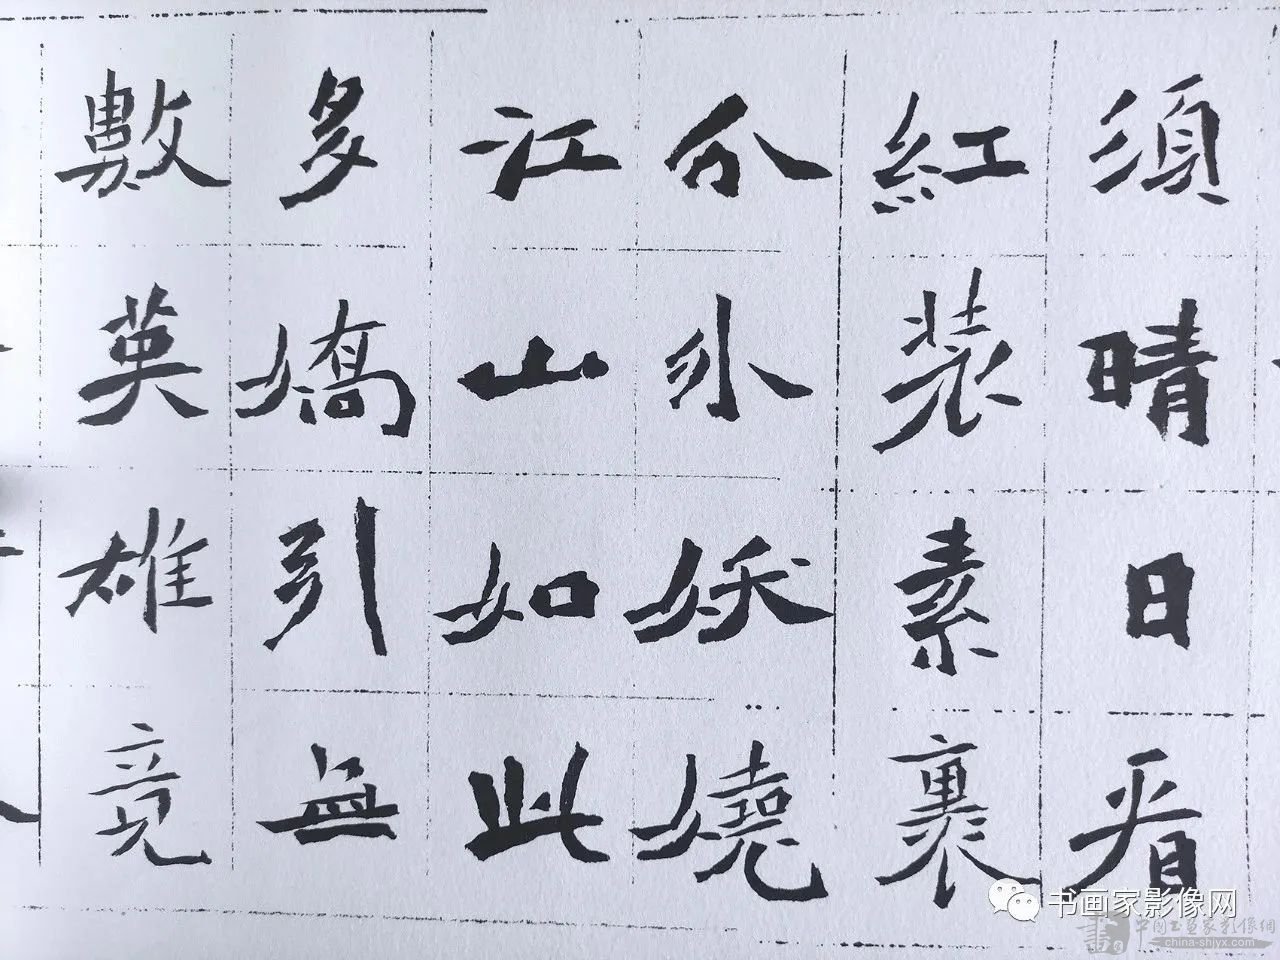 須晴日看
紅装素裹
分外妖嬈
江山如此
多嬌引無
數英雄竞
书画家影像网
中国书画家影像網
china-shjyx.com